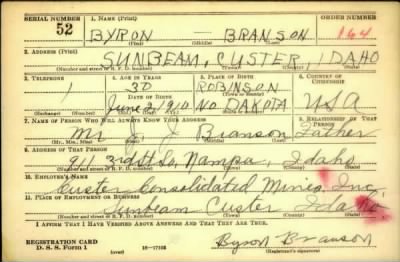 SERIAL NUMBER 1. NAME (Print)
52 BYRON BRANSON 164
(First) (Middle) (Last)
2. ADDRESS (Print)
SUNBEAM, CUSTER, IDAHO
(Number and street or R. F. D. number) (Town) (County) (State)
3. TELEPHONE 4. AGE IN YEARS 5. PLACE OF BIRTH 6. COUNTRY OF CITIZENSHIP
30 ROBINSON
June 2, 1910 NO. DAKOTA USA
7. NAME OF PERSON WHO WILL ALWAYS KNOW YOUR ADDRESS 8. RELATIONSHIP OF THAT PERSON
Mr. J. Branson Father
(Mr., Mrs., Miss) (First) (Middle) (Last)
9. ADDRESS OF THAT PERSON
911 3rd St So, Nampa, Idaho
(Number and street or R. F. D. number) (Town) (County) (State)
10. EMPLOYER'S NAME
Custer Consolidated Mines, Inc.
11. PLACE OF EMPLOYMENT OR BUSINESS
Sunbeam Custer Idaho
(Number and street or R. F. D. number) (Town) (County) (State)
I AFFIRM THAT I HAVE VERIFIED ABOVE ANSWERS AND THAT THEY ARE TRUE.
REGISTRATION CARD
D. S. S. Form 1 (over) 16—17105 Byron Branson
(Registrant's signature)